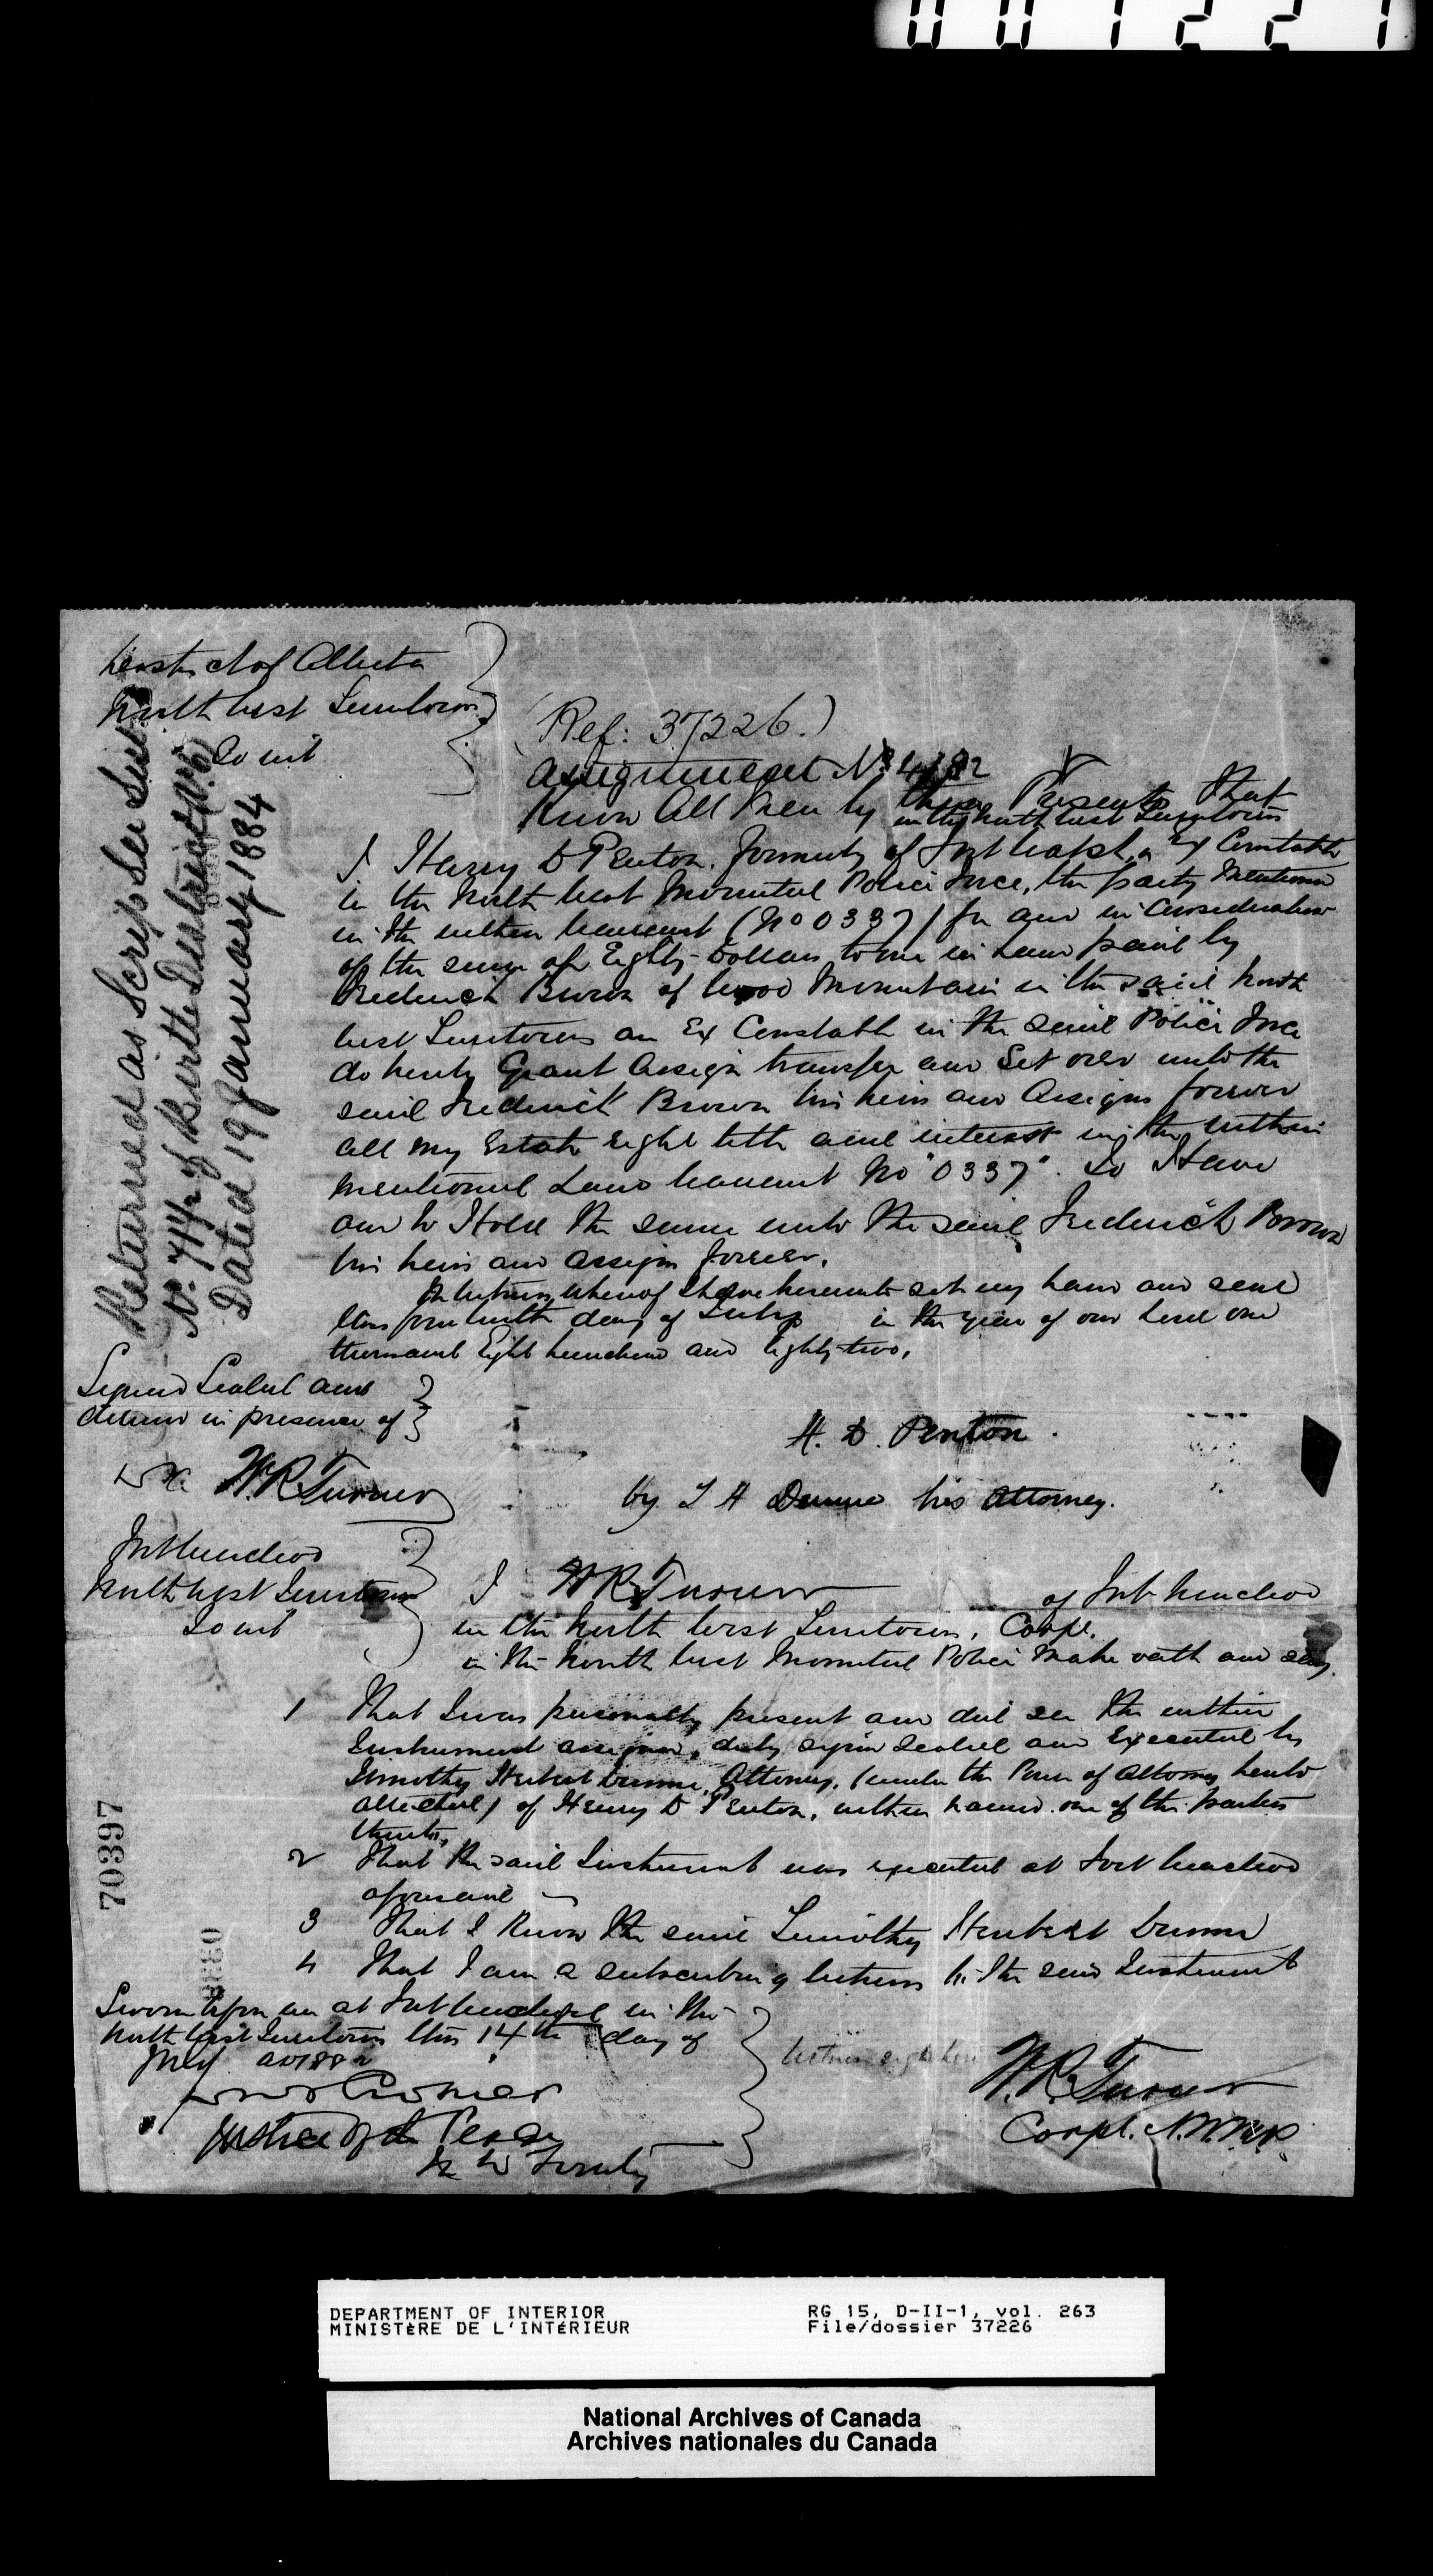 001221
District of Alberta
North West Territories
To wit
(Ref: 37226.)
Assignment No
Know All Men by these Presents that
in the North West Territories
I Harry D Penton, formerly of Fort Walsh, Ex Constable
in the North West Mounted Police Force, the party Mentioned
in the within Warrant (No 0337) for and in Consideration
of the sum of Eighty Dollars to me in hand paid by
Frederick Brown of Wood Mountain in the said North
West Territories an Ex Constable in the said Police Force
do hereby Grant Assign transfer and Set over unto the
said Frederick Brown his heirs and Assigns forever
all my Estate right title and interest in the within
mentioned Land Warrant No "0337". To Have
and to Hold the same unto the said Frederick Brown
his heirs and assigns forever.
In Witness Whereof I have hereunto set my hand and seal
this fourteenth day of July in the year of our Lord one
thousand Eight hundred and Eighty-two.
Signed Sealed and
delivered in presence of
W.R. Turner
H. D. Penton.
by T H Dunne his Attorney.
Fort Macleod
North West Territories
To wit
I W R Turner of Fort Macleod
in the North West Territories, Corpl.
in the North West Mounted Police Make oath and say
1 That I was personally present and did see the within
Instrument assigned, duly signed Sealed and Executed by
Timothy Herbert Dunne, Attorney, (under the Power of Attorney hereto
attached) of Henry D Penton, within named one of the parties
thereto,
2 That the said Instrument was executed at Fort Macleod
aforesaid
3 That I know the said Timothy Herbert Dunne
4 That I am a subscribing Witness to the said Instrument
Sworn before me at Fort Macleod in the
North West Territories this 14th day of
July AD 1882
Justice of the Peace
N W Territy
Witness sign here
W.R. Turner
Corpl. N.W.M.P.
Returned as Scrip See Sub
No 744 of Birtle District
Dated 19 January 1884
70397
DEPARTMENT OF INTERIOR
MINISTÈRE DE L'INTÉRIEUR
RG 15, D-II-1, vol. 263
File/dossier 37226
National Archives of Canada
Archives nationales du Canada